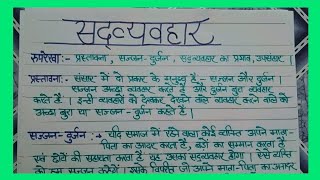 सद्व्यवहार
रुपरेखा:- प्रस्तावना, सज्जन-दुर्जन, सद्व्यवहार का प्रभाव, उपसंहार।
प्रस्तावना:- संसार में दो प्रकार के मनुष्य हैं - सज्जन और दुर्जन।
सज्जन अच्छा व्यवहार करते हैं और दुर्जन बुरा व्यवहार
करते हैं। इन्हीं व्यवहारों को देखकर देखने वाले व्यवहार करने वाले को
अच्छा बुरा या सज्जन-दुर्जन कहते हैं।
सज्जन-दुर्जन:- यदि समाज में रहने वाला कोई व्यक्ति अपने माता-
पिता का आदर करता है, बड़ों का सम्मान करता है
एवं दीनों की सहायता करता है यह उसका सद्व्यवहार होगा। ऐसे व्यक्ति
को हम सज्जन कहेंगे। इसके विपरीत जो अपने माता-पिता का अनादर